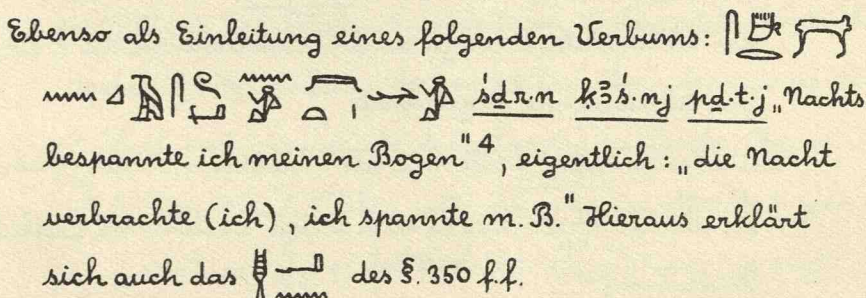 Ebenso als Einleitung eines folgenden Verbums:
śḏr·n ḳꜣś·nj pḏ·t·j „Nachts
bespannte ich meinen Bogen" 4, eigentlich: „die Nacht
verbrachte (ich), ich spannte m. B." Hieraus erklärt
sich auch das des §. 350 f.f.